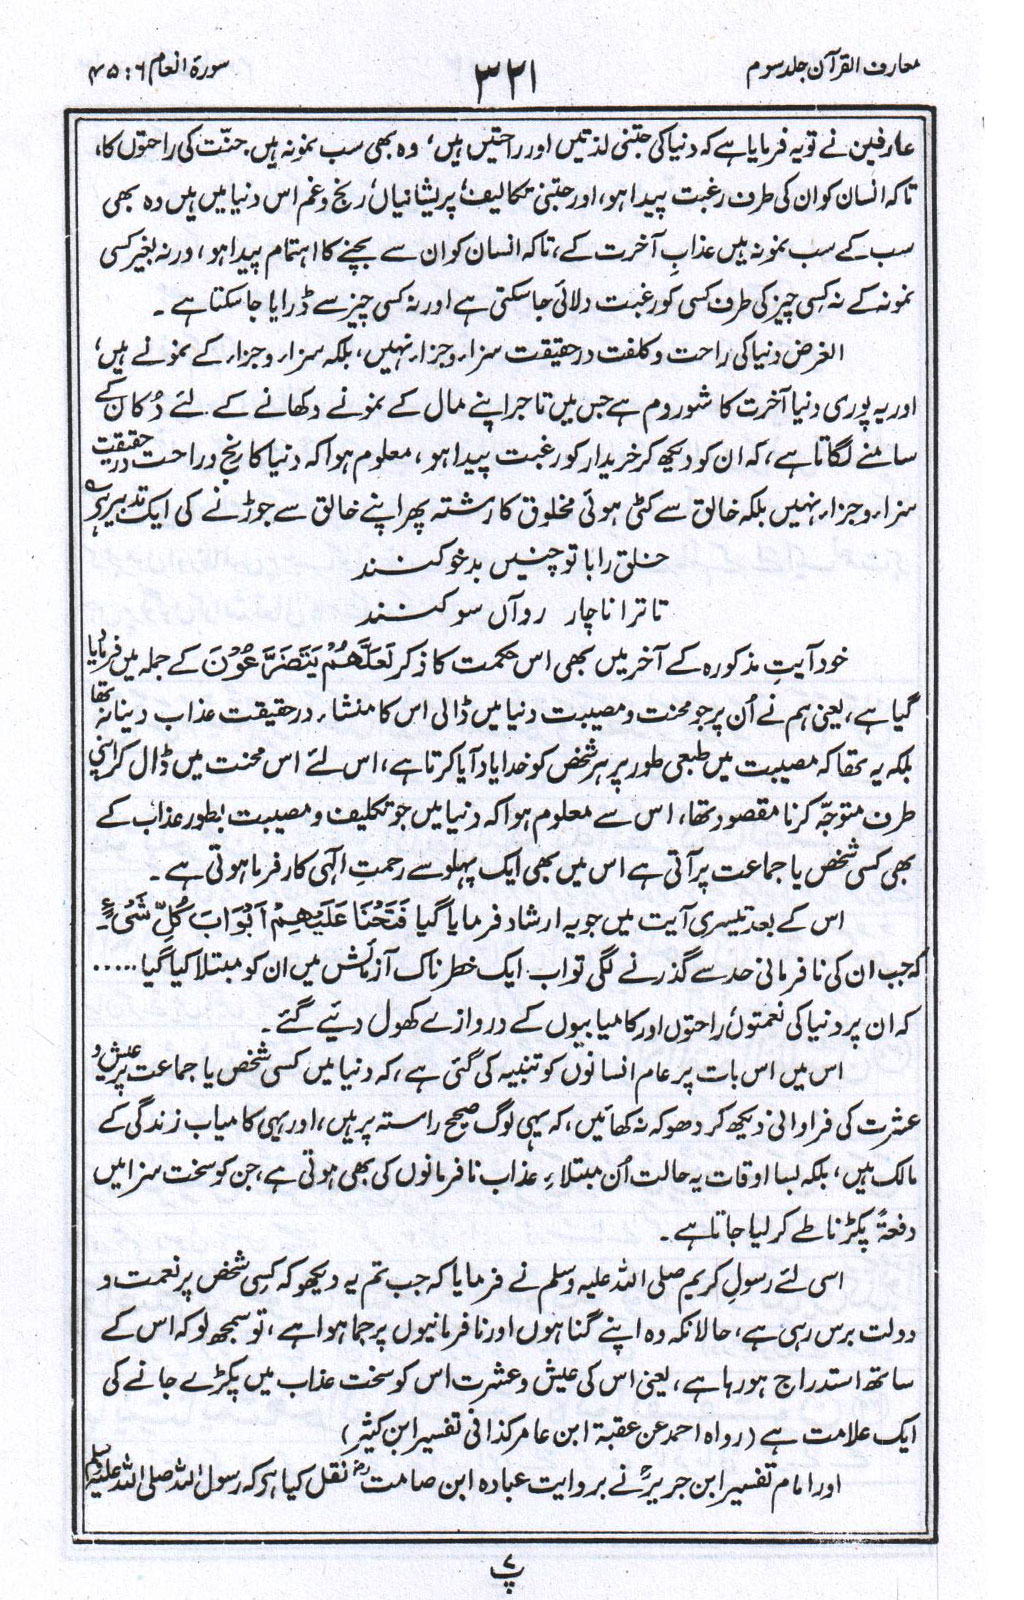 معارف القرآن جلد سوم
۳۲۱
سورۃ انعام ۶ : ۴۵
عارفین نے تو یہ فرمایا ہے کہ دنیا کی جتنی لذتیں اور راحتیں ہیں، وہ بھی سب نمونہ ہیں جنّت کی راحتوں کا،
تاکہ انسان کو ان کی طرف رغبت پیدا ہو، اور جتنی تکالیف، پریشانیاں، رنج و غم اس دنیا میں ہیں وہ بھی
سب کے سب نمونہ ہیں عذابِ آخرت کے، تاکہ انسان کو ان سے بچنے کا اہتمام پیدا ہو، ورنہ بغیر کسی
نمونہ کے نہ کسِی چیز کی طرف کسی کو رغبت دلائی جاسکتی ہے اور نہ کسی چیز سے ڈرایا جاسکتا ہے ۔
الغرض دنیا کی راحت و کلفت درحقیقت سزاء و جزاء نہیں، بلکہ سزاء و جزاء کے نمونے ہیں،
اور یہ پوری دنیا آخرت کا شوروم ہے جس میں تاجر اپنے مال کے نمونے دکھانے کے لئے دُکان کے
سامنے لگاتا ہے، کہ ان کو دیکھ کر خریدار کو رغبت پیدا ہو، معلوم ہوا کہ دنیا کا رنج و راحت درحقیقت
سزاء و جزاء نہیں بلکہ خالق سے کٹی ہوئی مخلوق کا رشتہ پھر اپنے خالق سے جوڑنے کی ایک تدبیر ہے
خلق را با تو چنیں بدخو کنند
تا ترا ناچار رو آں سو کنند
خود آیتِ مذکورہ کے آخر میں بھی اس حکمت کا ذکر لَعَلَّهُمْ يَتَضَرَّعُوْنَ کے جملہ میں فرمایا
گیا ہے، یعنی ہم نے اُن پر جو محنت و مصیبت دنیا میں ڈالی اس کا منشاء درحقیقت عذاب دینا نہ تھا
بلکہ یہ تھا کہ مصیبت میں طبعی طور پر ہر شخص کو خدا یاد آیا کرتا ہے، اس لئے اس محنت میں ڈال کر اپنی
طرف متوجّہ کرنا مقصود تھا، اس سے معلوم ہوا کہ دنیا میں جو تکلیف و مصیبت بطور عذاب کے
بھی کسی شخص یا جماعت پر آتی ہے اس میں بھی ایک پہلو سے رحمتِ الٰہی کارفرما ہوتی ہے ۔
اس کے بعد تیسری آیت میں جو یہ ارشاد فرمایا گیا فَتَحْنَا عَلَيْهِمْ اَبْوَابَ كُلِّ شَیْءٍ ۔
کہ جب ان کی نافرمانی حد سے گذرنے لگی تو اب ایک خطرناک آزمائش میں ان کو مبتلا کیا گیا .....
کہ ان پر دنیا کی نعمتوں، راحتوں اور کامیابیوں کے دروازے کھول دئیے گئے ۔
اس میں اس بات پر عام انسانوں کو تنبیہ کی گئی ہے، کہ دنیا میں کسی شخص یا جماعت پر عیش و
عشرت کی فراوانی دیکھ کر دھوکہ نہ کھائیں، کہ یہی لوگ صحیح راستہ پر ہیں، اور یہی کامیاب زندگی کے
مالک ہیں، بلکہ بسا اوقات یہ حالت اُن مبتلاءِ عذاب نافرمانوں کی بھی ہوتی ہے، جن کو سخت سزا میں
دفعۃً پکڑنا طے کرلیا جاتا ہے ۔
اسی لئے رسولِ کریم صلی اللہ علیہ وسلم نے فرمایا کہ جب تم یہ دیکھو کہ کسِی شخص پر نعمت و
دولت برس رہی ہے، حالانکہ وہ اپنے گناہوں اور نافرمانیوں پر جما ہوا ہے، تو سمجھ لو کہ اس کے
ساتھ استدراج ہو رہا ہے، یعنی اس کی عیش و عشرت اس کو سخت عذاب میں پکڑے جانے کی
ایک علامت ہے (رواہ احمد عن عقبۃ ابن عامر کذا فی تفسیر ابن کثیر)
اور امام تفسیر ابن جریرؒ نے بروایت عبادہ ابن صامت رضؓ نقل کیا ہو کہ رسول اللہ صلی اللہ علیہ وسلم
پ ۷